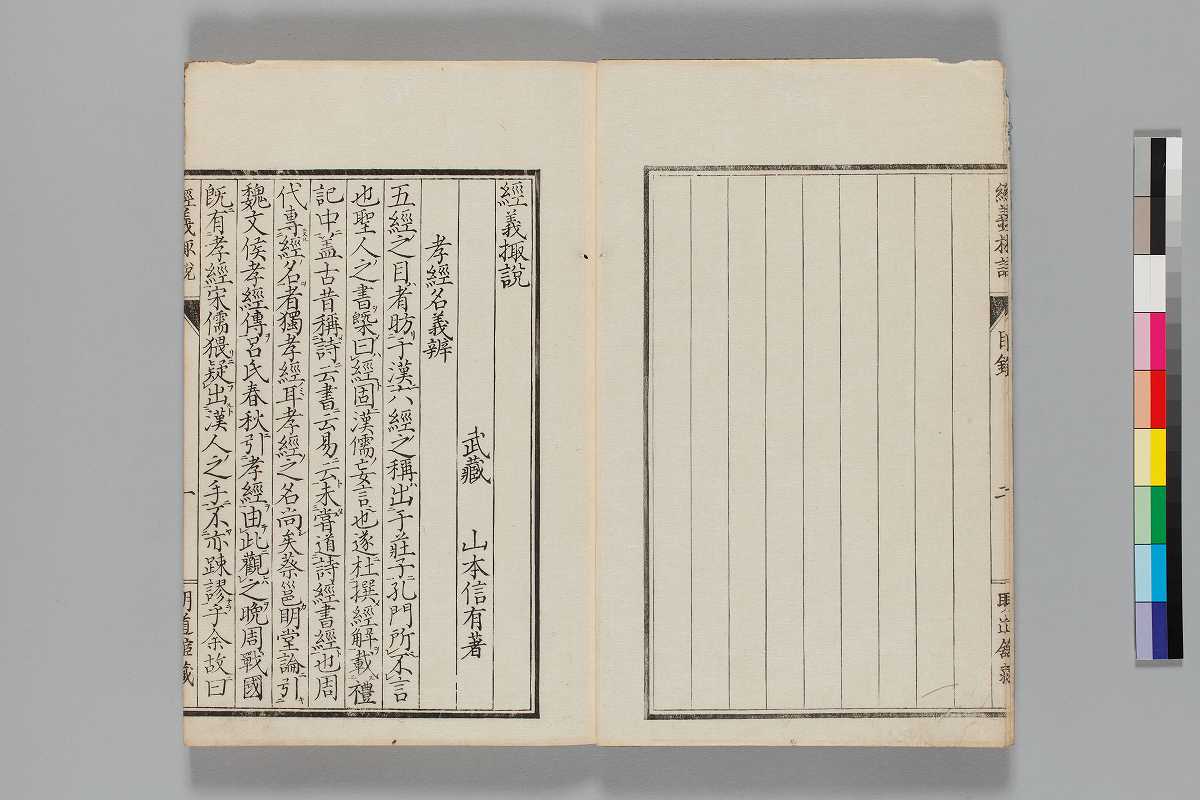 目錄
二
經義掫說
武藏 山本信有著
孝經名義辨
五經之目者昉于漢六經之稱出于莊子孔門所不言
也聖人之書槩曰經固漢儒妄言也遂杜撰經解載禮
記中盖古昔稱詩云書云易云未嘗道詩經書經也周
代專經名者獨孝經耳孝經之名尚矣蔡邕明堂論引
魏文侯孝經傳呂氏春秋引孝經由此觀之晚周戰國
旣有孝經宋儒猥疑出漢人之手不亦疎謬乎余故曰
經義掫說
一
明道館藏